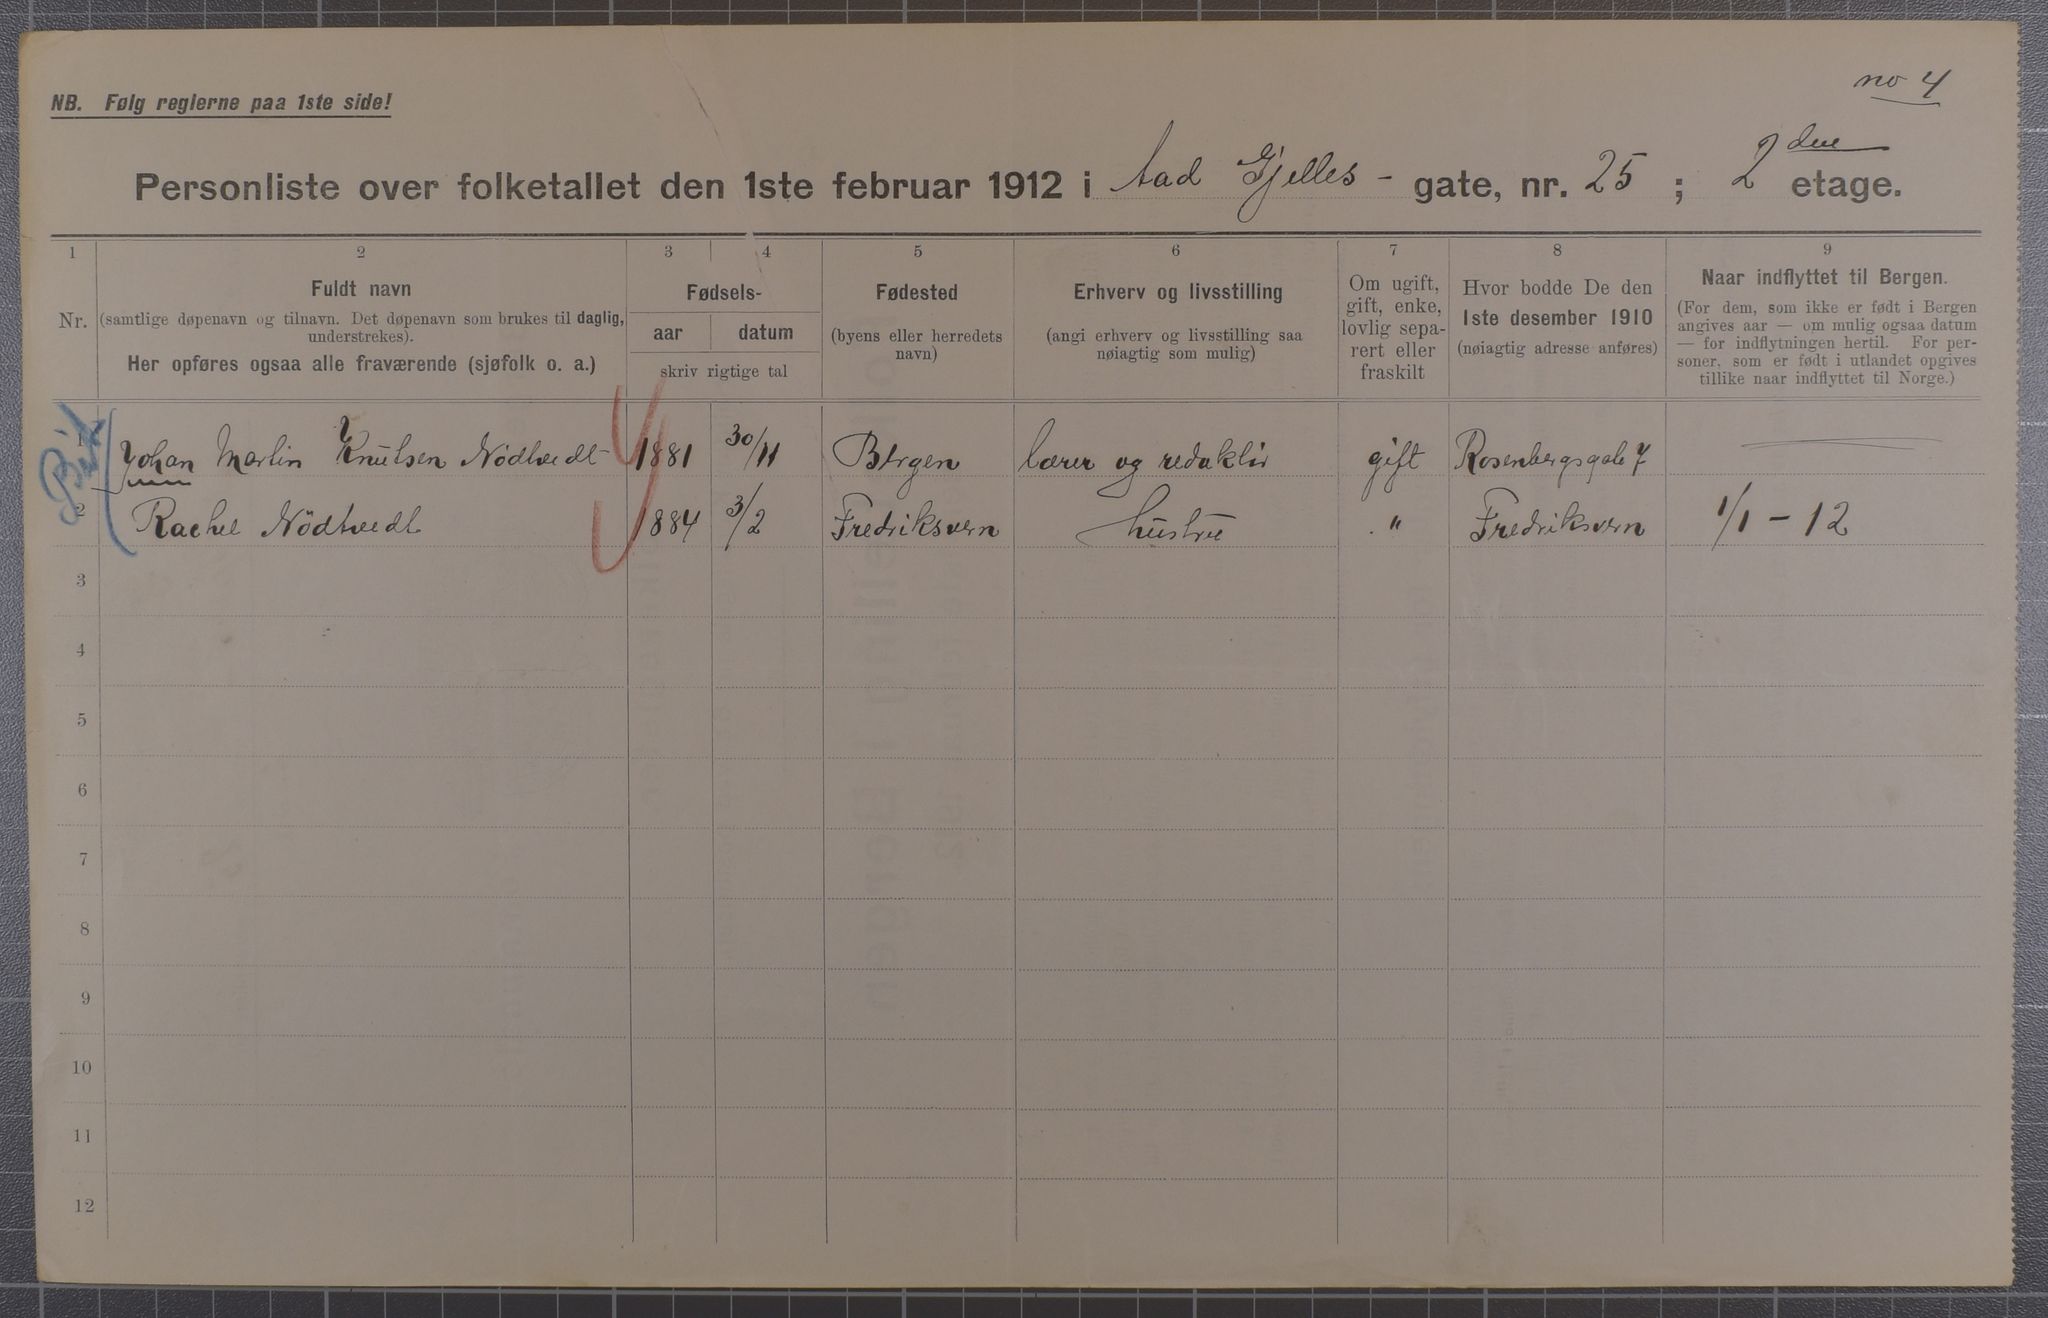 no 4
NB. Følg reglerne paa 1ste side!
Personliste over folketallet den 1ste februar 1912 i Aad Gjelles - gate, nr. 25 ; 2den etage.
1 2 3 4 5 6 7 8 9
Nr.
Fuldt navn
(samtlige døpenavn og tilnavn. Det døpenavn som brukes til daglig,
understrekes).
Her opføres ogsaa alle fraværende (sjøfolk o. a.)
Fødsels-
aar datum
skriv rigtige tal
Fødested
(byens eller herredets
navn)
Erhverv og livsstilling
(angi erhverv og livsstilling saa
nøiagtig som mulig)
Om ugift,
gift, enke,
lovlig sepa-
rert eller
fraskilt
Hvor bodde De den
1ste desember 1910
(nøiagtig adresse anføres)
Naar indflyttet til Bergen.
(For dem, som ikke er født i Bergen
angives aar — om mulig ogsaa datum
— for indflytningen hertil. For per-
soner, som er født i utlandet opgives
tillike naar indflyttet til Norge.)
1 Johan Martin Knutsen Nödtvedt 1881 30/11 Bergen lærer og redaktör gift Rosenbergsgate 7
2 Rachel Nödtvedt 1884 3/2 Fredriksvern hustru " Fredriksvern 1/1 - 12
3
4
5
6
7
8
9
10
11
12